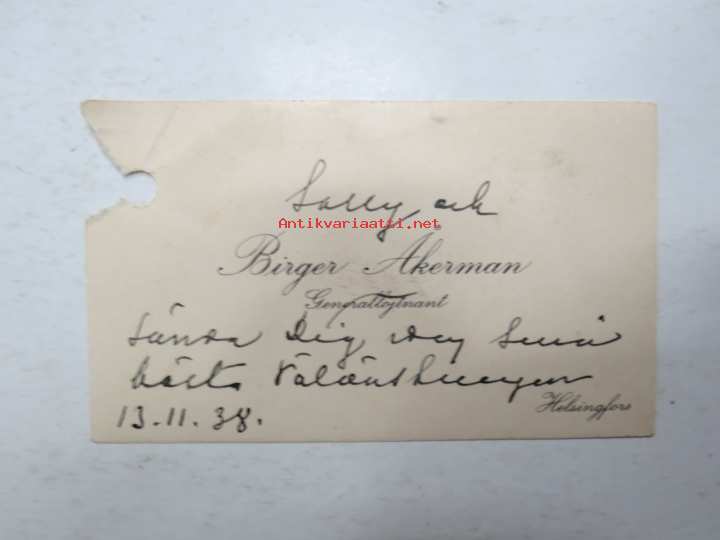 Sally och
Antikvariaatti.net
Birger Åkerman
Generallöjtnant
sända Dig sina
bästa Välönskningar
13.11.38.
Helsingfors